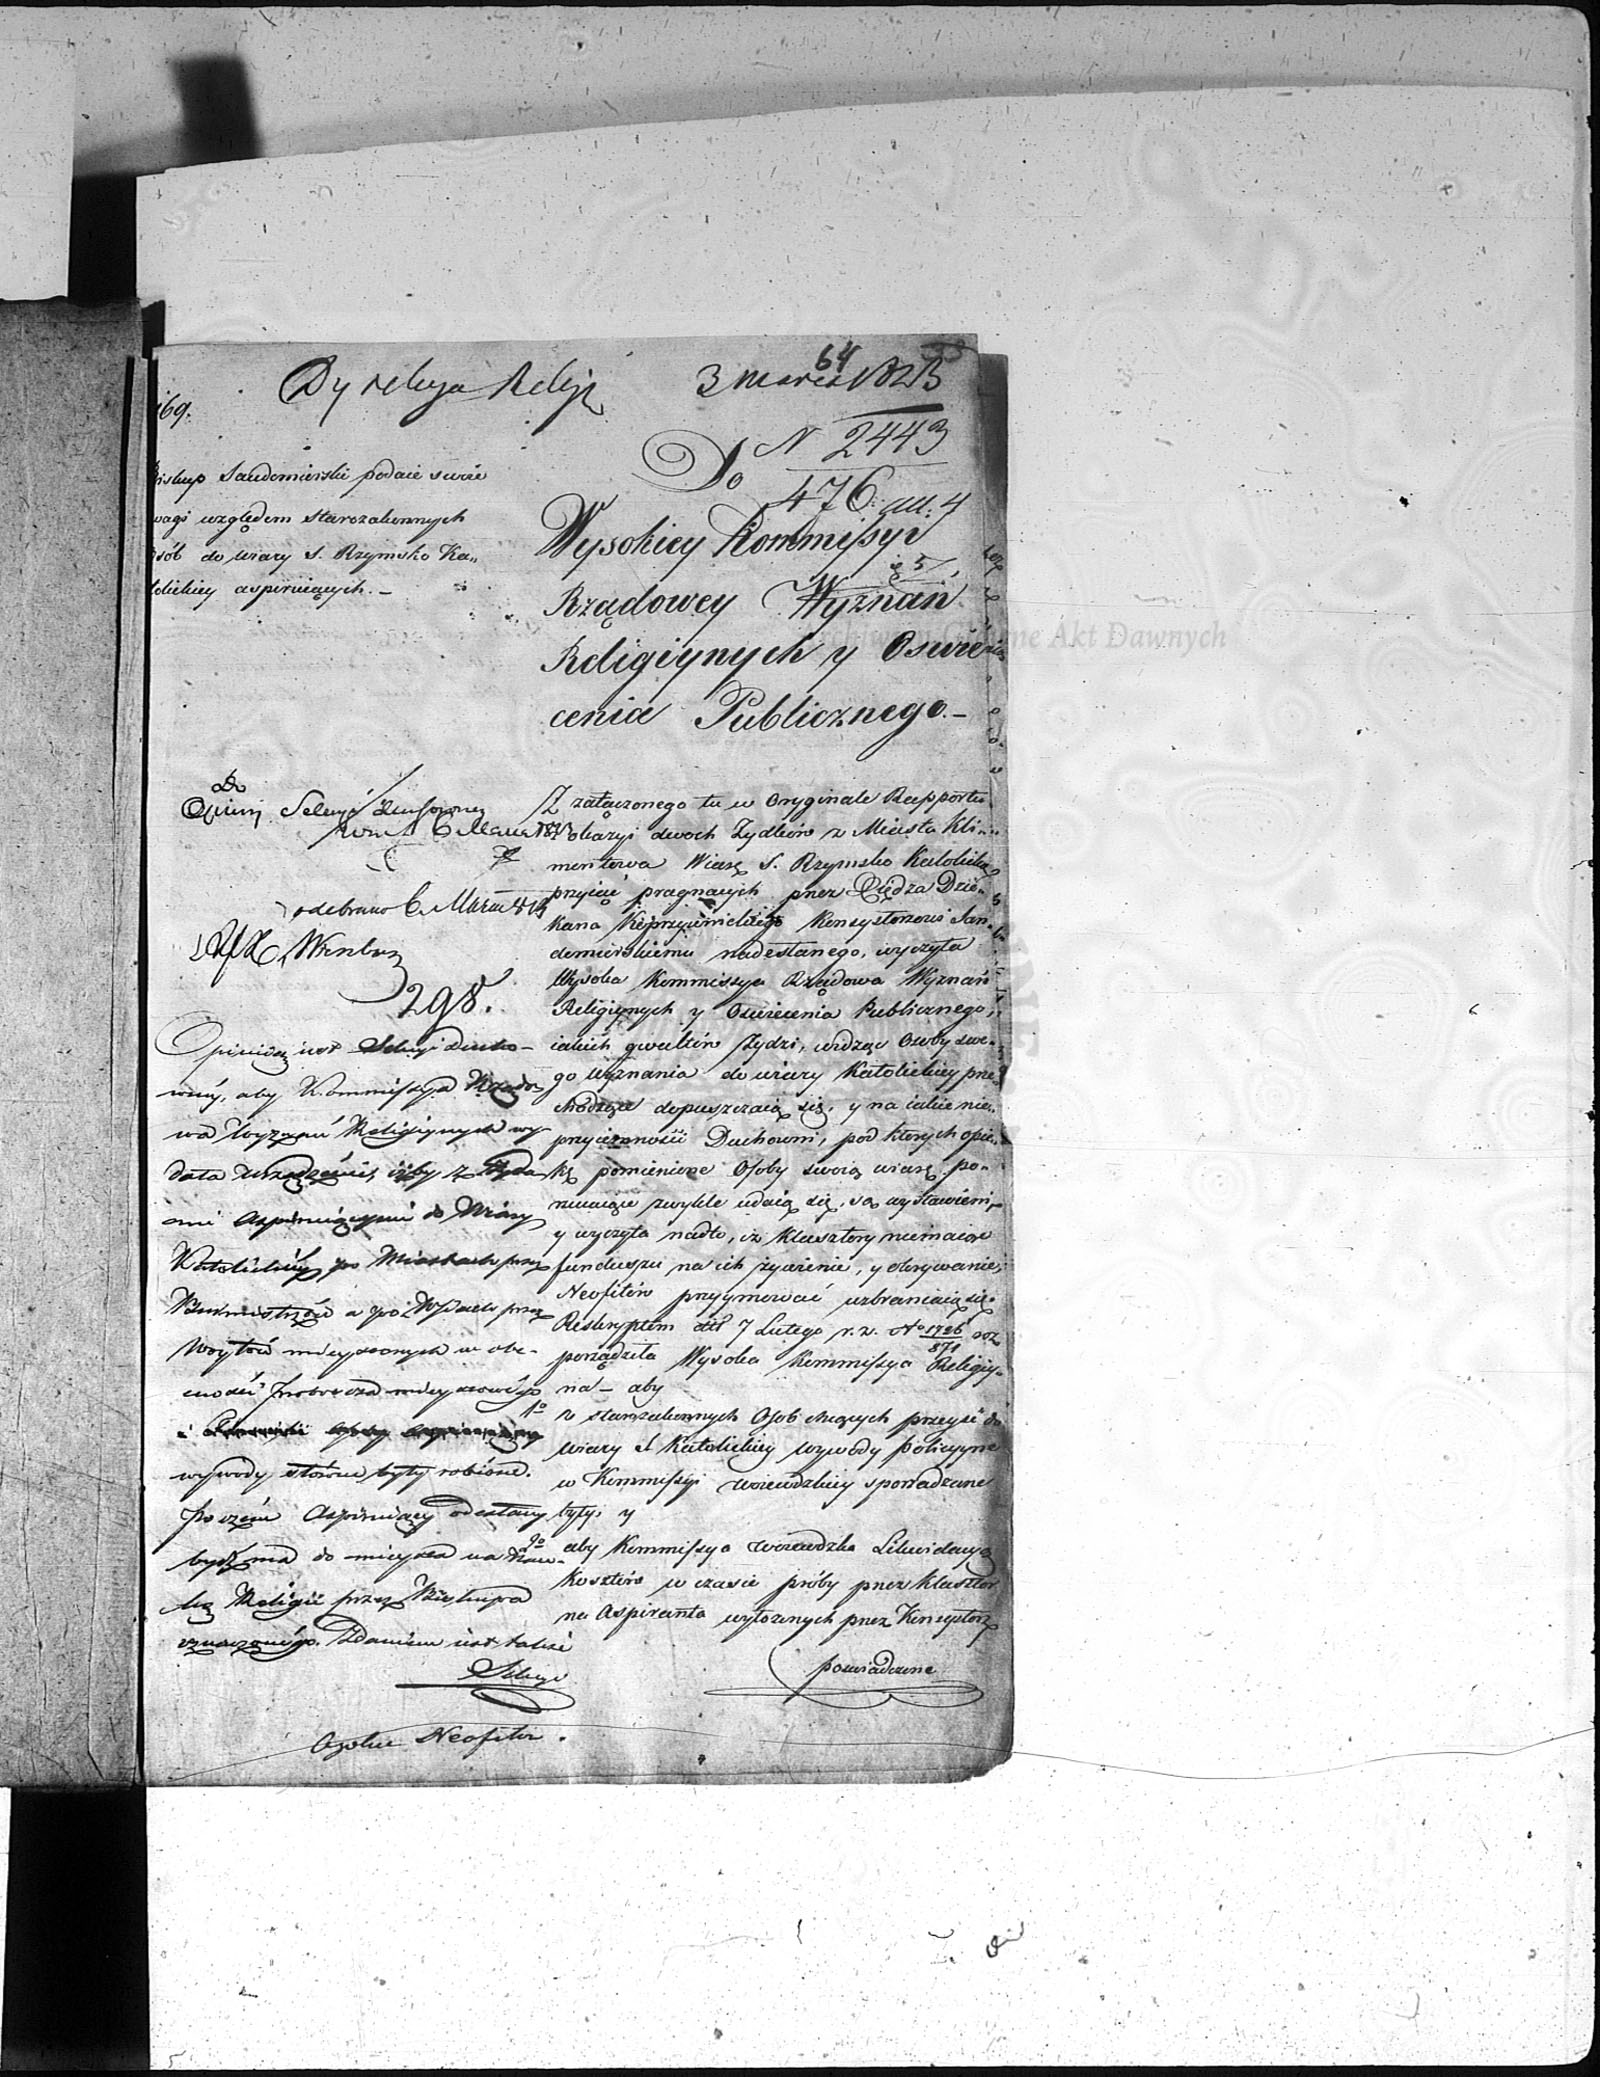 64
Dyrekcya Religi
3 Marca 1823
169.
N 2443
476
Biskup Sandomierski podaie swoie
uwagi względem starozakonnych
osób do wiary S. Rzymsko Ka„
tolickiey aspiruiących. –
Do
Wysokiey Kommissyi
Rządowey Wyznań
Religiynych y Oswie
cenia Publicznego. –
Archiwum Główne Akt Dawnych
Do
Opinij Sekcyi duchowney
odebrano 6 Marca
298.
Opinią iest Sekcyi Ducho–
wnéy, aby Kommissya Rządo
wa Wyznań Religiynych wy
dała urządzenie, iżby z Żyda
mi Aspiruiącymi do Wiary
Katolickiéy po Miastach przez
Burmistrzów a po Wsiach przez
Woytów mieyscowych w obe–
cności Proboszcza mieyscowégo
wywody słowne były robione.
Poczém Aspiruiący odesłany
bydź ma do mieysca na Nau–
kę Religii przez Biskupa
wyznaczonégo. Zdaniem iest także
Sekcyi
Ogólne Neofitów.
Z załączonego tu w Oryginale Rapportu
okazyi dwoch Żydków z Miasta Kli„
mentowa Wiarę S. Rzymsko Katolicką
przyiąć pragnących przez Xiędza Dzie„
kana Koprzywnickiego Konsystorzowi San„
domierskiemu nadesłanego, wyczyta
Wysoka Kommissya Rządowa Wyznań
Religiynych y Oswiecenia Publicznego,
iakich gwałtów Żydzi, widząc Osoby swe„
go wyznania do wiary Katolickiey prze
chodzące dopuszczaią się, y na iakie nie„
przyiemności Duchowni, pod których opie„
kę pomienione Osoby swoią wiarę po„
rzucaiące zwykle udaią się, są wystawieni,
y wyczyta nadto, iż Klasztory niemaiąc
funduszu na ich żywienie, y okrywanie,
Neofitów przyymować wzbraniaią się.
Reskryptem dtt 7 Lutego r. z. No 1726/871 roz
porządziła Wysoka Kommissya Religiy„
na – aby
1o z starozakonnych Osob chcących przeyść do
wiary S. Katolickiey wywody policyyne
w Kommissyi woiewdzkiey sporządzane
były, y
2o aby Kommissya woiewdzka Likwidacyą
Kosztów w czasie próby przez Klasztor
na Aspiranta wyłożonych przez Konsystorz
poswiadczone